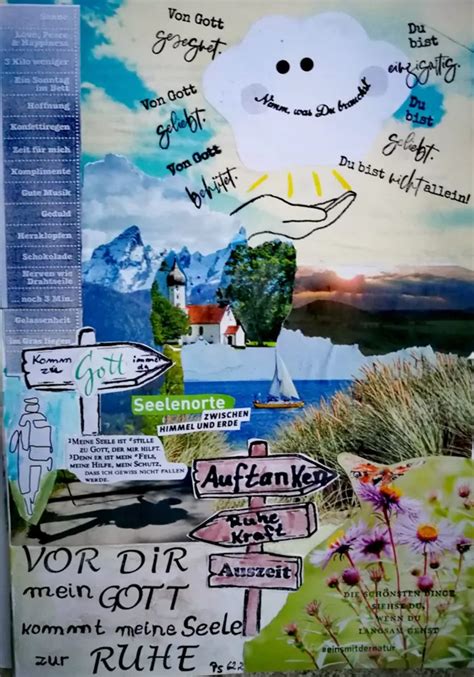 Sonne
Love, Peace
& Happiness
3 Kilo weniger
Ein Sonntag
im Bett
Hoffnung
Konfettiregen
Zeit für mich
Komplimente
Gute Musik
Geduld
Herzklopfen
Schokolade
Nerven wie
Drahtseile
... noch 3 Min.
Gelassenheit
im Gras liegen
Von Gott
gesegnet.
Von Gott
geliebt.
Von Gott
behütet.
Nimm, was Du brauchst
Du
bist
einzigartig.
Du
bist
geliebt.
Du bist nicht allein!
Komm immer
zu Gott da
Seelenorte
ZWISCHEN
HIMMEL UND ERDE
²MEINE SEELE IST *STILLE
ZU GOTT, DER MIR HILFT.
³DENN ER IST MEIN *FELS,
MEINE HILFE, MEIN SCHUTZ,
DASS ICH GEWISS NICHT FALLEN
WERDE.
Auftanken
Ruhe
Kraft
Auszeit
VOR DiR
mein GOTT
kommt meine Seele
zur RUHE Ps 62.2
DIE SCHÖNSTEN DINGE
SIEHST DU,
WENN DU
LANGSAM GEHST
#einsmitdernatur